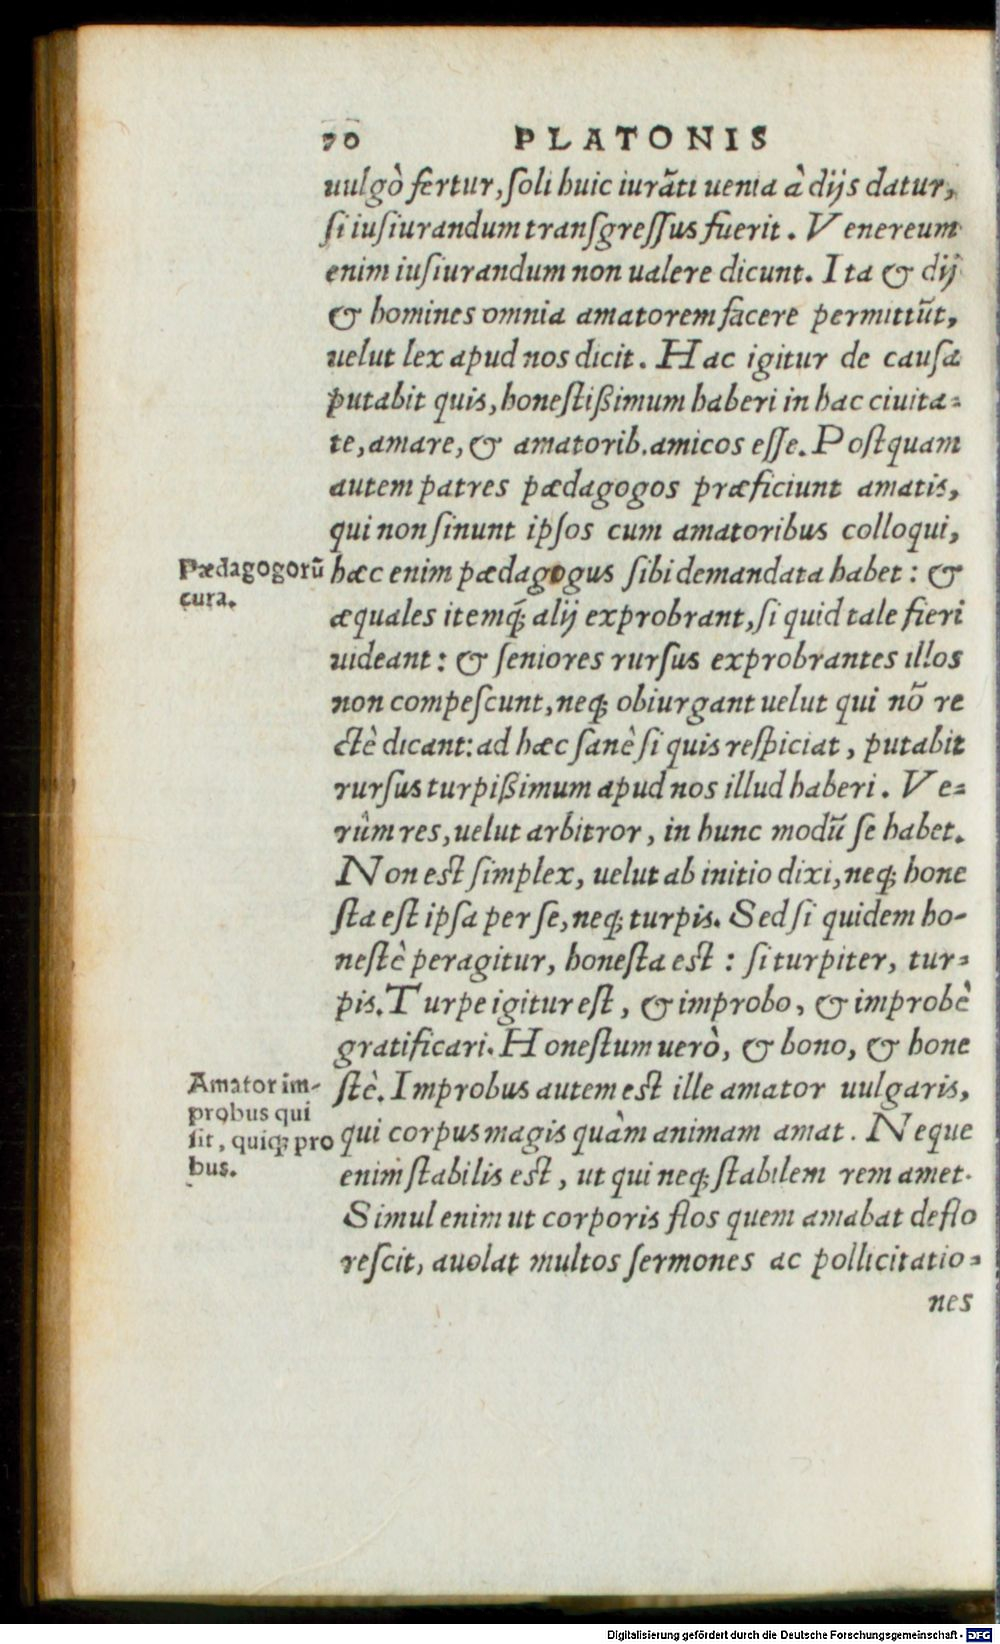 70 PLATONIS
uulgò fertur, ſoli huic iurãti uenia à dijs datur,
ſi iuſiurandum tranſgreſſus fuerit. Venereum
enim iuſiurandum non ualere dicunt. Ita & dij
& homines omnia amatorem facere permittũt,
uelut lex apud nos dicit. Hac igitur de cauſa
putabit quis, honeſtißimum haberi in hac ciuita-
te, amare, & amatorib. amicos eſſe. Poſtquam
autem patres pædagogos præficiunt amatis,
qui non ſinunt ipſos cum amatoribus colloqui,
Pædagogorũ
cura.
hæc enim pædagogus ſibi demandata habet: &
æquales itemq́; alij exprobrant, ſi quid tale fieri
uideant: & ſeniores rurſus exprobrantes illos
non compeſcunt, neq; obiurgant uelut qui nõ re
ctè dicant: ad hæc ſanè ſi quis reſpiciat, putabit
rurſus turpißimum apud nos illud haberi. Ve-
rûm res, uelut arbitror, in hunc modũ ſe habet.
Non eſt ſimplex, uelut ab initio dixi, neq; hone
ſta eſt ipſa per ſe, neq; turpis. Sed ſi quidem ho-
neſtè peragitur, honeſta eſt: ſi turpiter, tur-
pis. Turpe igitur eſt, & improbo, & improbè
gratificari. Honeſtum uerò, & bono, & hone
Amator im-
probus qui
ſit, quiq; pro
bus.
ſtè. Improbus autem eſt ille amator uulgaris,
qui corpus magis quàm animam amat. Neque
enim ſtabilis eſt, ut qui neq; ſtabilem rem amet.
Simul enim ut corporis flos quem amabat deflo
reſcit, auolat multos ſermones ac pollicitatio-
nes
Digitalisierung gefördert durch die Deutsche Forschungsgemeinschaft - DFG